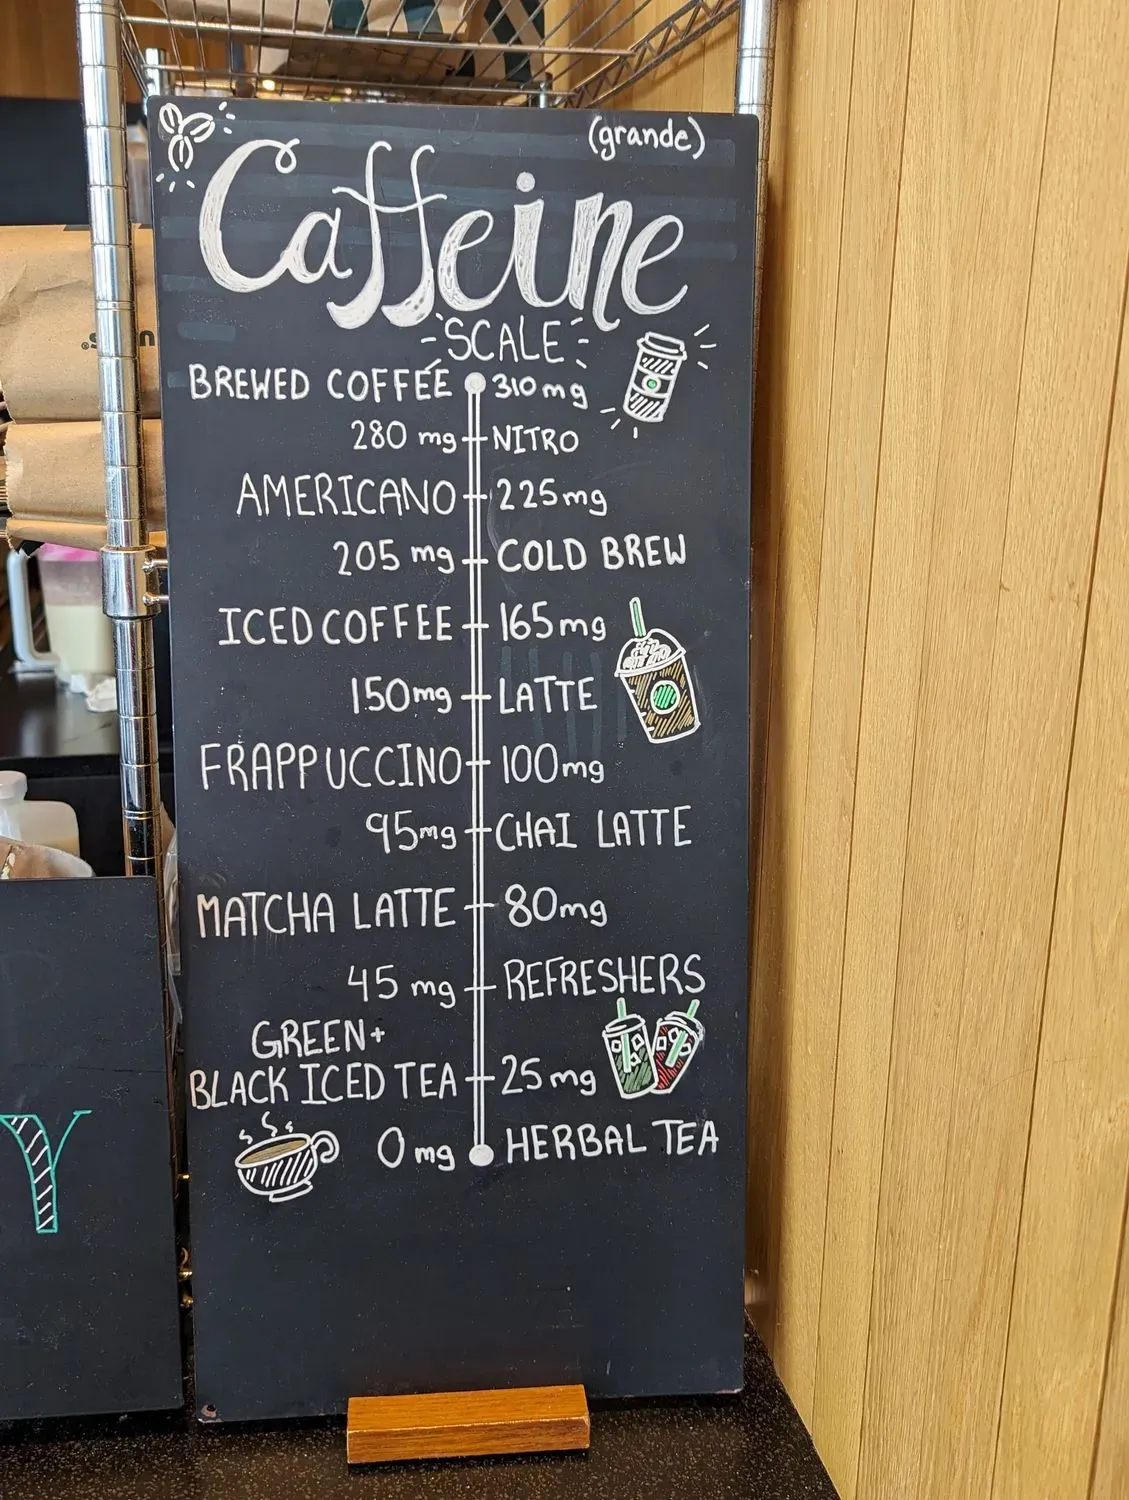 (grande)
Caffeine
SCALE
BREWED COFFEE 310 mg
280 mg NITRO
AMERICANO 225mg
205 mg COLD BREW
ICED COFFEE 165mg
150mg LATTE
FRAPPUCCINO 100mg
95mg CHAI LATTE
MATCHA LATTE 80mg
45 mg REFRESHERS
GREEN+
BLACK ICED TEA 25mg
0mg HERBAL TEA
Y